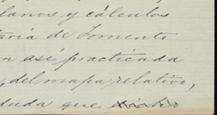 lanos y cálculos
taría de Fomento
n asé practicada
, del mapa relativo,
duda que